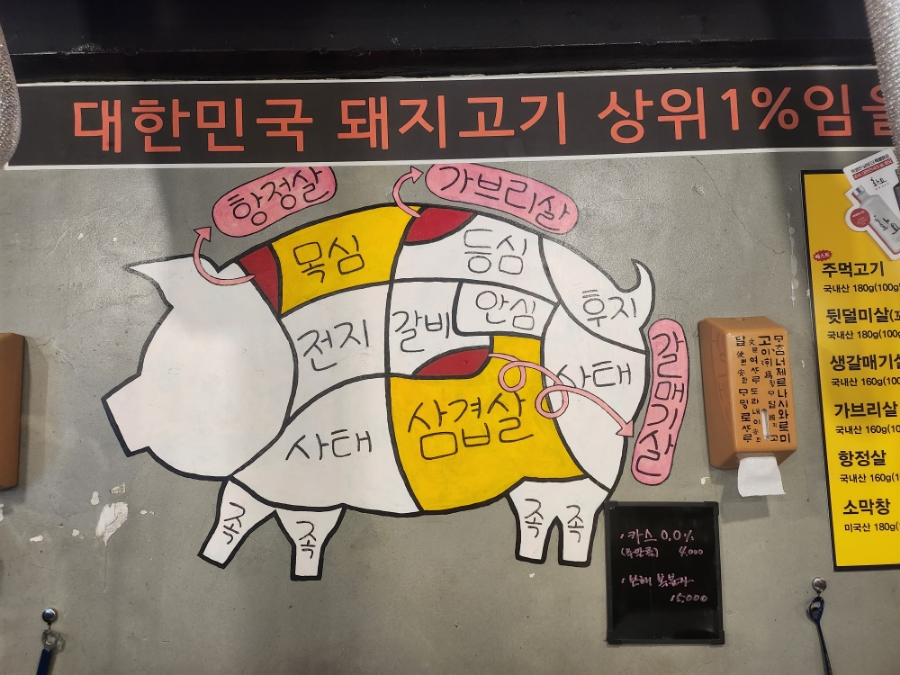 대한민국 돼지고기 상위1%임을
항정살
가브리살
목심
등심
전지
갈비
안심
후지
사태
삼겹살
사태
갈매기살
족
족
족
족
주먹고기
국내산 180g(100g
뒷덜미살(꼬
국내산 180g(100
생갈매기살
국내산 160g(100
가브리살
국내산 160g(10
항정살
국내산 160g(1
소막창
미국산 180g(
카스 0.0%
4,000
15,000